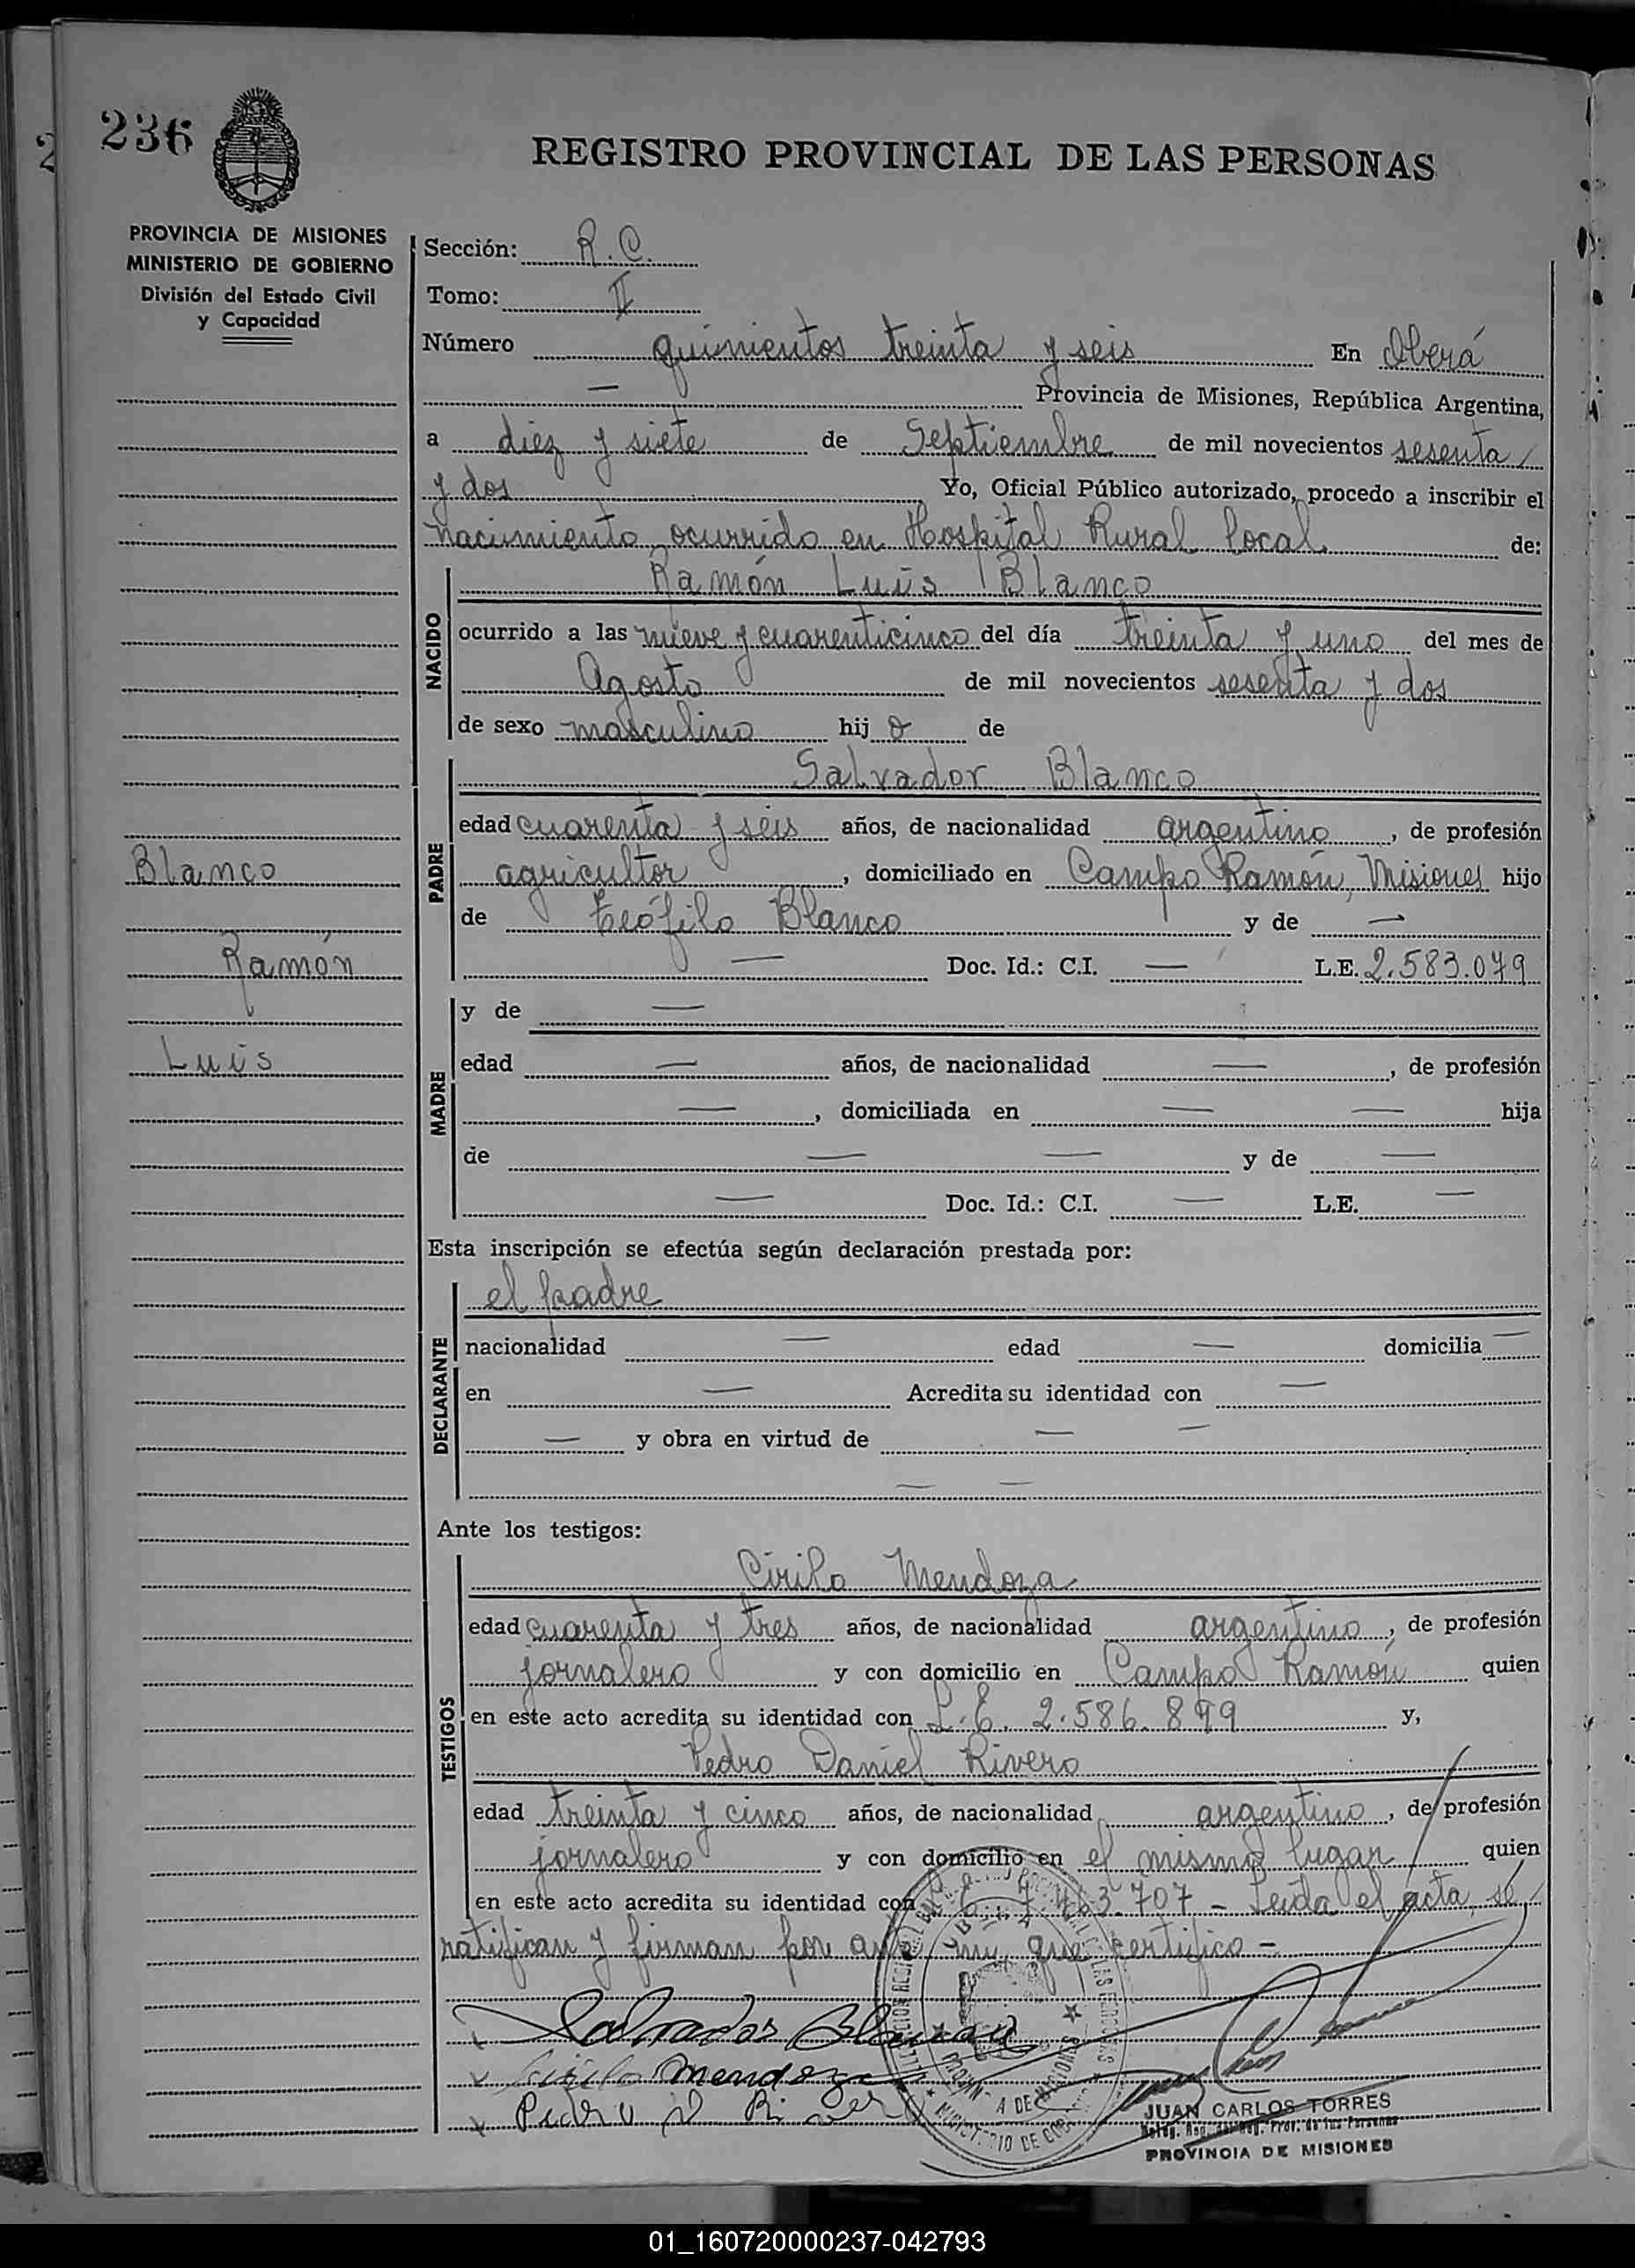 236
REGISTRO PROVINCIAL DE LAS PERSONAS
PROVINCIA DE MISIONES
MINISTERIO DE GOBIERNO
División del Estado Civil
y Capacidad
Sección: R.C.
Tomo: II
Número quinientos treinta y seis En Oberá
— Provincia de Misiones, República Argentina,
a diez y siete de Septiembre de mil novecientos sesenta
y dos Yo, Oficial Público autorizado, procedo a inscribir el
nacimiento ocurrido en Hospital Rural Local de:
Ramón Luis Blanco
NACIDO
ocurrido a las nueve y cuarenticinco del día treinta y uno del mes de
Agosto de mil novecientos sesenta y dos
de sexo masculino hij o de
Salvador Blanco
PADRE
edad cuarenta y seis años, de nacionalidad argentino, de profesión
agricultor, domiciliado en Campo Ramón, Misiones hijo
de Teófilo Blanco y de —
— Doc. Id.: C.I. — L.E. 2.583.079
Blanco
Ramón
Luis
MADRE
y de —
edad — años, de nacionalidad —, de profesión
—, domiciliada en — — hija
de — — y de —
— Doc. Id.: C.I. — L.E. —
Esta inscripción se efectúa según declaración prestada por:
DECLARANTE
el padre
nacionalidad — edad — domicilia —
en — Acredita su identidad con —
— y obra en virtud de — —
— —
Ante los testigos:
TESTIGOS
Cirilo Mendoza
edad cuarenta y tres años, de nacionalidad argentino, de profesión
jornalero y con domicilio en Campo Ramón quien
en este acto acredita su identidad con L.E. 2.586.899 y,
Pedro Daniel Rivero
edad treinta y cinco años, de nacionalidad argentino, de profesión
jornalero y con domicilio en el mismo lugar quien
en este acto acredita su identidad con 3.707 - Leída el acta, se
ratifican y firman por ante mi, que certifico -
Salvador Blanco
Cirilo Mendoza
Pedro D Rivero
JUAN CARLOS TORRES
PROVINCIA DE MISIONES
01_160720000237-042793